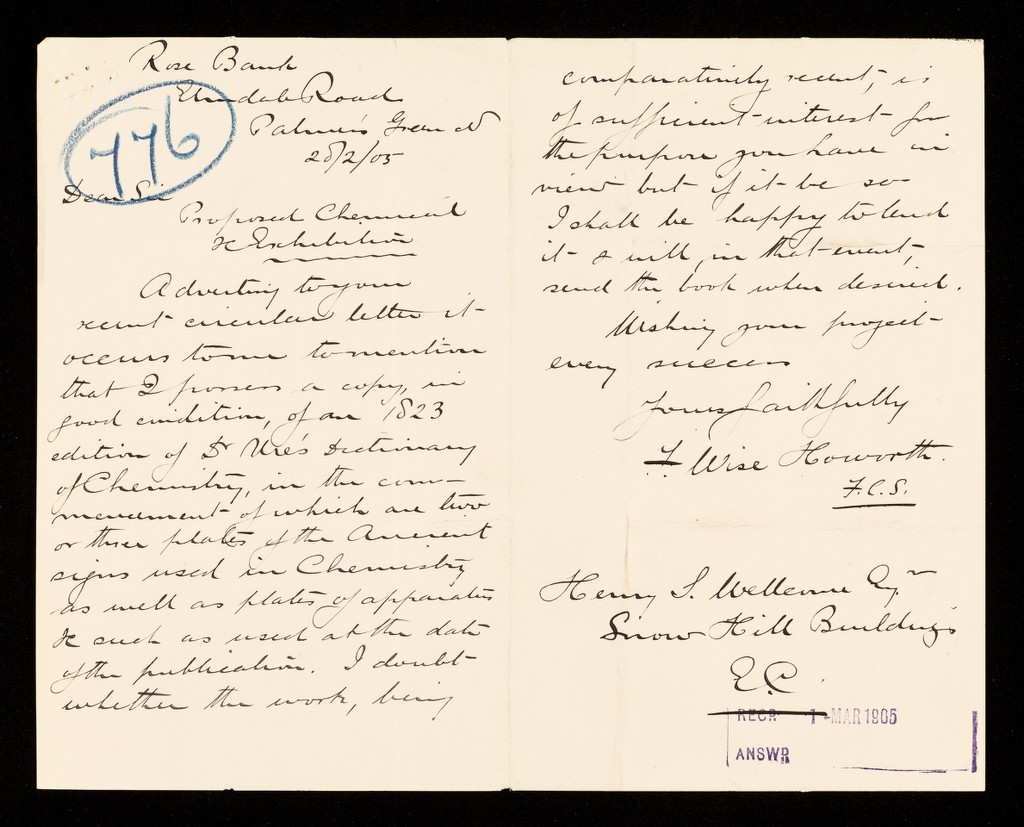 Rose Bank
Elmdale Road
Palmers Green N
28/2/05
776
Dear Sir
Proposed Chemical
&c Exhibition
Adverting to your
recent circular letter it
occurs to me to mention
that I possess a copy, in
good condition, of an 1823
edition of Dr Ure's Dictionary
of Chemistry, in the com-
mencement of which are two
or three plates of the Ancient
signs used in Chemistry
as well as plates of apparatus
&c such as used at the date
of the publication. I doubt
whether the work, being
comparatively recent, is
of sufficient interest for
the purpose you have in
view but if it be so
I shall be happy to lend
it & will, in that event,
send the book when desired.
Wishing your project
every success
Yours faithfully
F. Wise Howorth.
F.C.S.
Henry S. Wellcome Esqr
Snow Hill Buildings
E.C.
RECR 1-MAR 1905
ANSWR